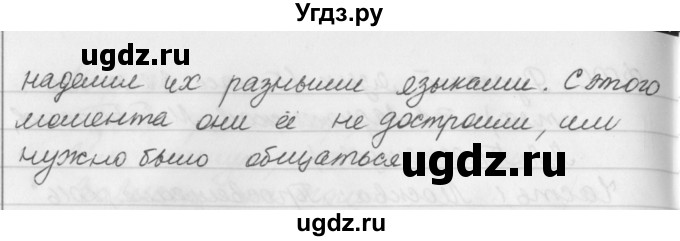 Угдз.ру
ugdz.ru
наделил их разными языками. С этого
момента они её не достроили, им
нужно было общаться
ugdz.ru
ugdz.ru